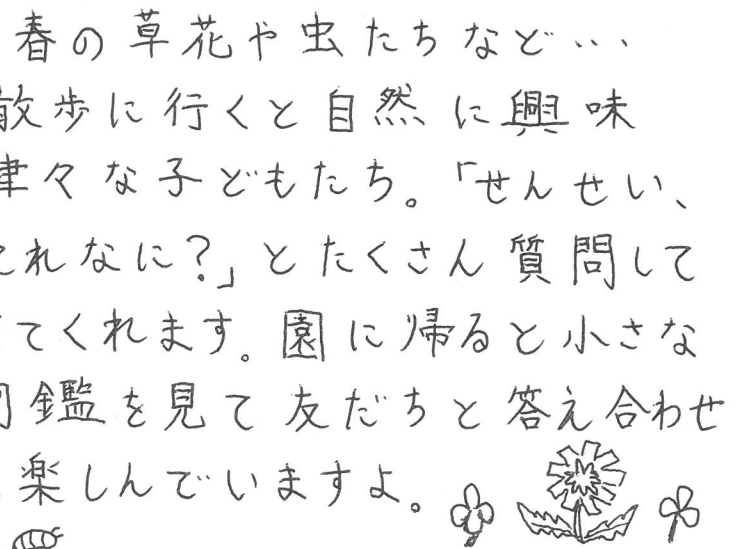 春の草花や虫たちなど…
散歩に行くと自然に興味
津々な子どもたち。「せんせい、
これなに?」とたくさん質問して
てくれます。園に帰ると小さな
図鑑を見て友だちと答え合わせ
楽しんでいますよ。